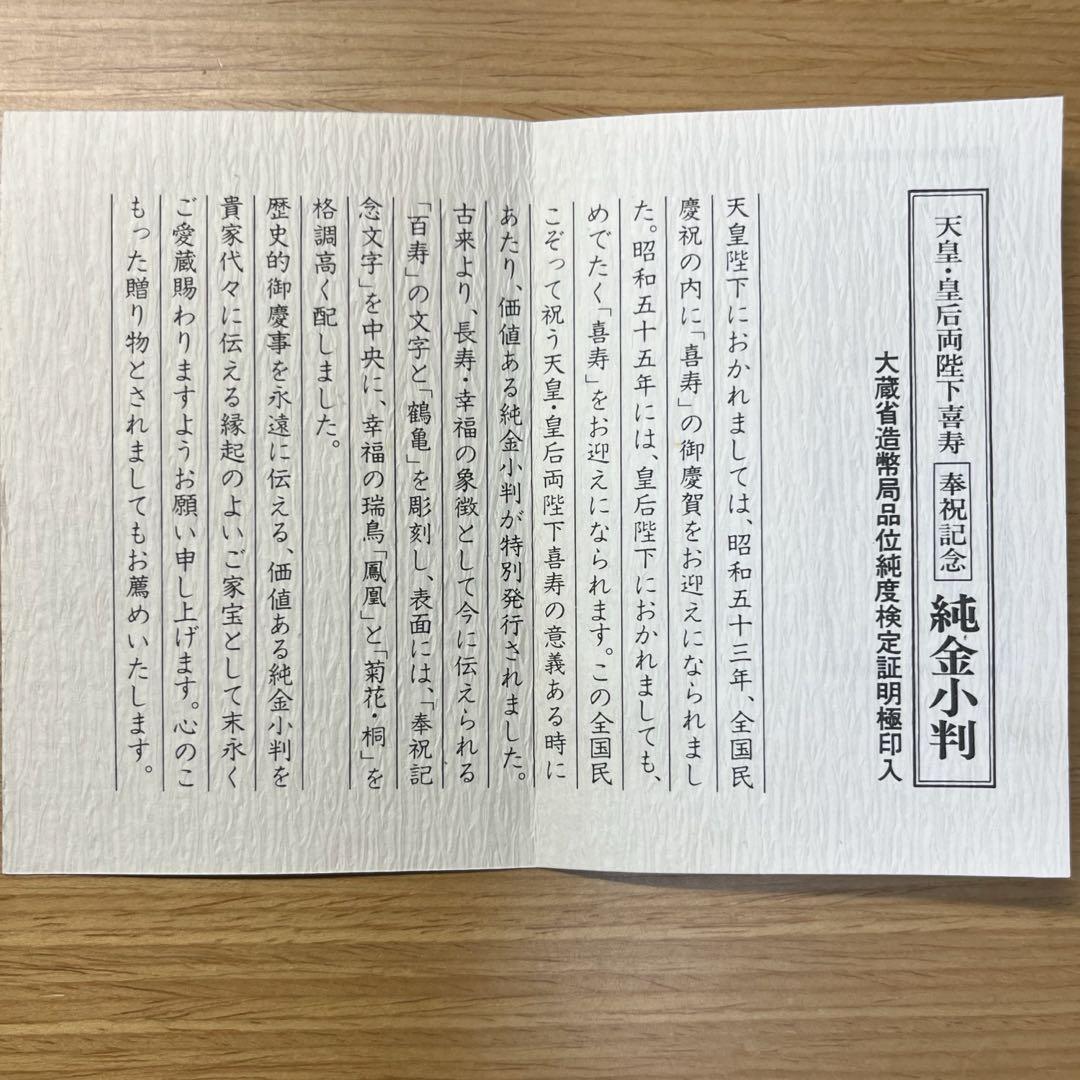 天皇・皇后両陛下喜寿 奉祝記念 純金小判
大蔵省造幣局品位純度検定証明極印入
天皇陛下におかれましては、昭和五十三年、全国民
慶祝の内に「喜寿」の御慶賀をお迎えになられまし
た。昭和五十五年には、皇后陛下におかれましても、
めでたく「喜寿」をお迎えになられます。この全国民
こぞって祝う天皇・皇后両陛下喜寿の意義ある時に
あたり、価値ある純金小判が特別発行されました。
古来より、長寿・幸福の象徴として今に伝えられる
「百寿」の文字と「鶴亀」を彫刻し、表面には、「奉祝記
念文字」を中央に、幸福の瑞鳥「鳳凰」と「菊花・桐」を
格調高く配しました。
歴史的御慶事を永遠に伝える、価値ある純金小判を
貴家代々に伝える縁起のよいご家宝として末永く
ご愛蔵賜わりますようお願い申し上げます。心のこ
もった贈り物とされましてもお薦めいたします。